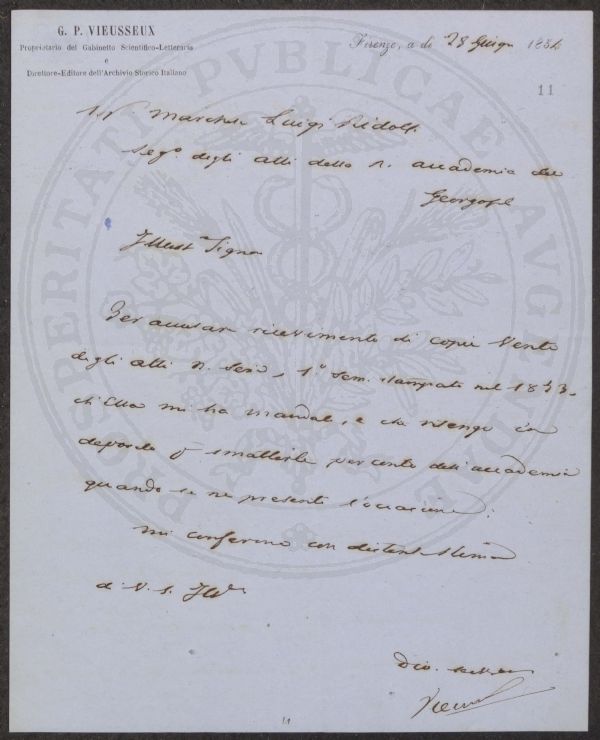 G. P. VIEUSSEUX
Proprietario del Gabinetto Scientifico-Letterario
e
Direttore-Editore dell'Archivio Storico Italiano
Firenze, a dì 28 Giugn 1854
11
Marchese Luigi Ridolfi
Segº degli atti della R. accademia dei
Georgofi
Illustº Signor
Per accusar ricevimento di copie Venti
degli atti N. Serie, 1º Sem. stampati nel 1853.
ch'Ella mi ha mandate, e che tengo in
deposito smaltirle per conto dell'accademia
quando se ne presenti l'occasione.
mi confermo con distinta stima
di V. S. Illª
Dev.
Vieusseux
PROSPERITATI PVBLICAE AVGENDAE